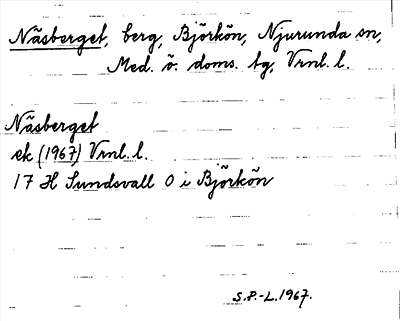 Näsberget, berg, Björkön, Njurunda sn,
Med. ö. doms. tg, Vrnl. l.
Näsberget
ek (1967) Vrnl. l.
17 H Sundsvall O i Björkön
S.P.-L. 1967.